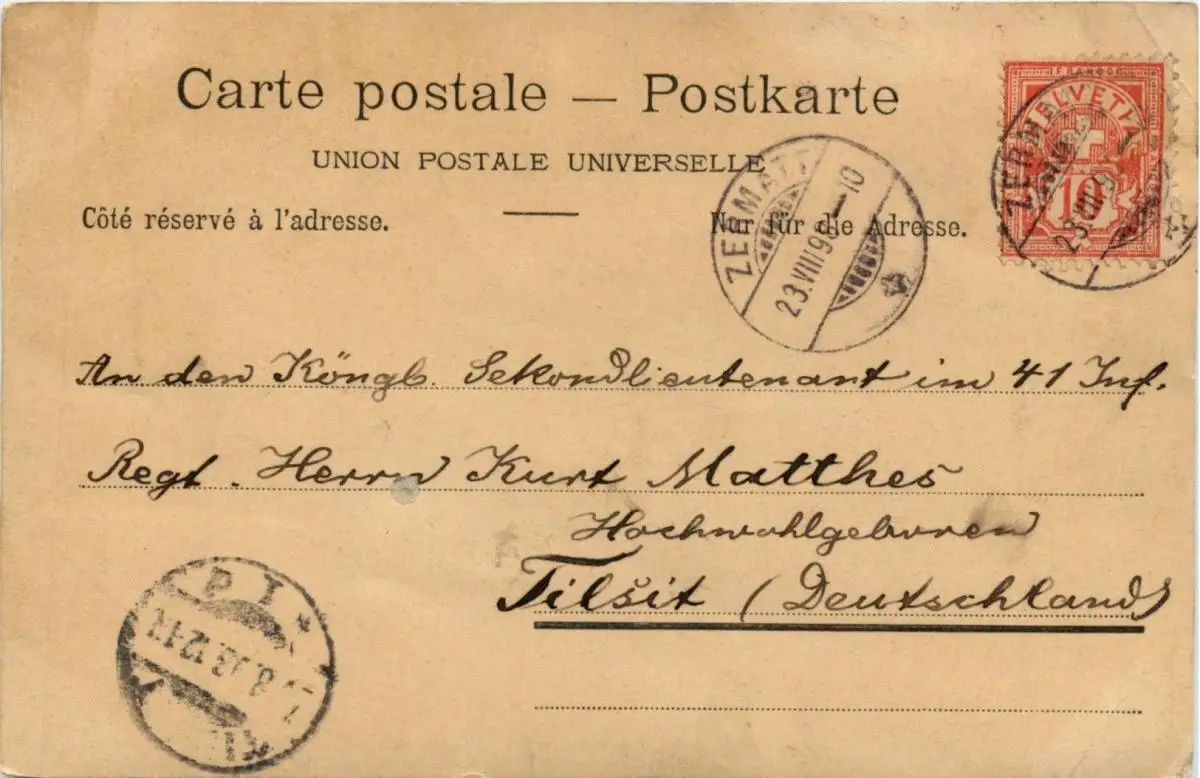 Carte postale — Postkarte
UNION POSTALE UNIVERSELLE
Côté réservé à l'adresse.
Nur für die Adresse.
FRANCO
HELVETIA
10
ZERMATT
23.VIII 98
ZERMATT
23.VIII 98 – 10
An den Köngl. Sekondlieutenant im 41 Inf.
Regt. Herrn Kurt Matthes
Hochwohlgeboren
Tilsit (Deutschland)